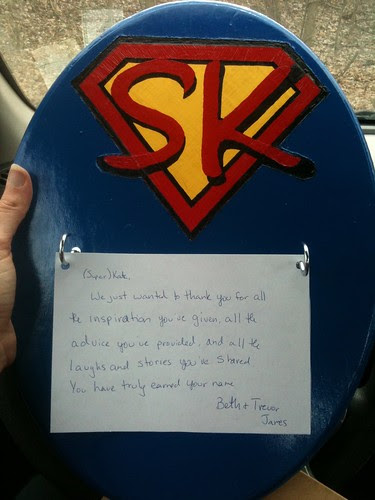 SK
(Super) Kate,
We just wanted to thank you for all
the inspiration you've given, all the
advice you've provided, and all the
laughs and stories you've shared.
You have truly earned your name
Beth + Trevor
James